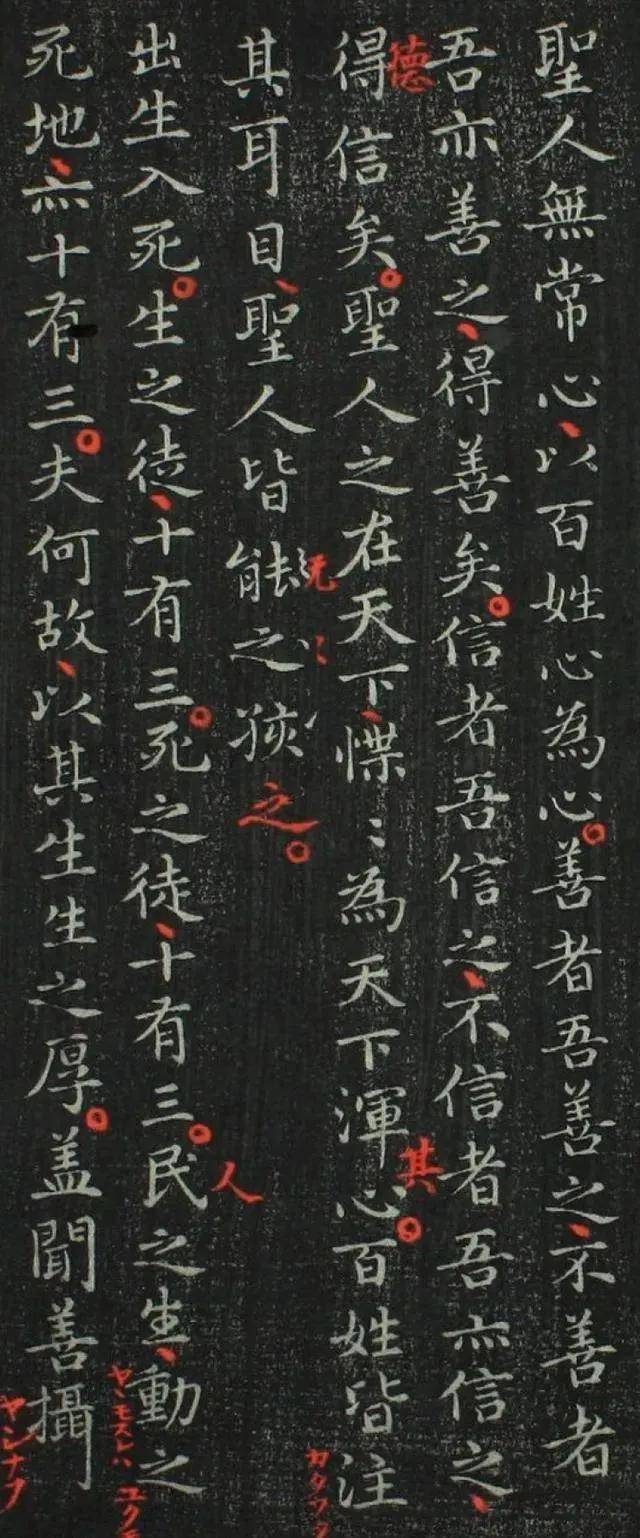 聖人無常心以百姓心為心善者吾善之不善者
吾亦善之得善矣信者吾信之不信者吾亦信之
德
得信矣聖人之在天下惵〻為天下渾心百姓皆注
其
其耳目聖人皆
之
出生入死生之徒十有三死之徒十有三民之生動之
人
死地亦十有三夫何故以其生生之厚盖聞善攝